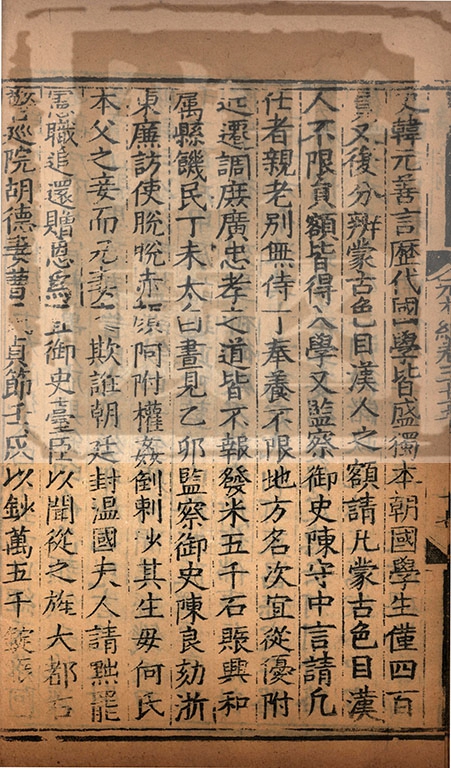 文韓元善言歷代國學皆盛獨本朝國學生僅四百
員又復分辨蒙古色目漢人之額請凡蒙古色目漢
人不限員額皆得入學又監察御史陳守中言請凡
仕者親老別無侍丁奉養不限地方名次宜從優附
近遷調庶廣忠孝之道皆不報發米五千石賑興和
属縣饑民丁未太白晝見乙卯監察御史陳良劾浙
東廉訪使脫脫赤顏阿附權姦倒剌沙其生毋何氏
本父之妾而兄妻 欺誑朝廷封温國夫人請黜罷
憲職追還贈恩爲宜御史臺臣以聞從之旌大都右
警廵院胡德妻曹氏貞節 以鈔萬五千錠賑